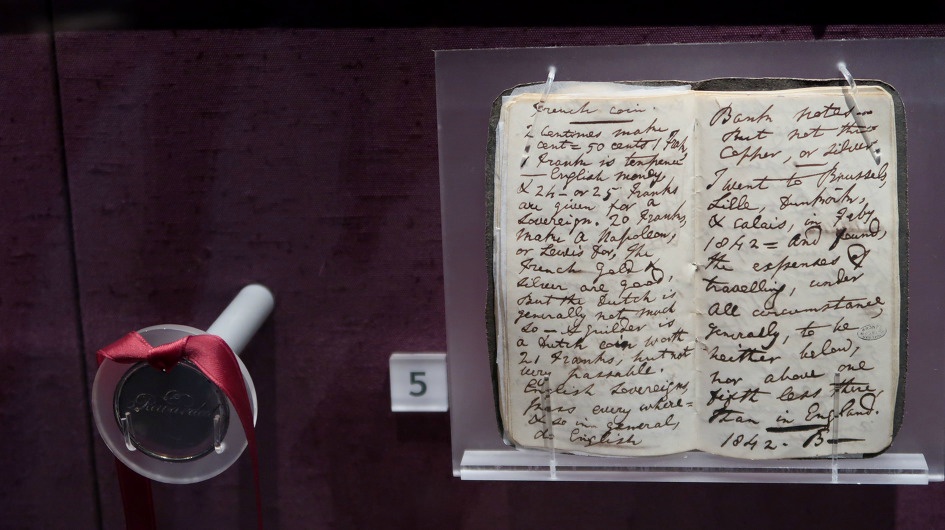 French coin.
2 Centimes make
cent = 50 cents 1 Frank,
1 Frank is tenpence
— English money,
& 24 — or 25 Franks
are given for a
Sovereign. 20 Franks,
make a Napoleon,
or Lewis Dor, The
French Gold &
Silver are good,
But the Dutch is
generally not much
so — A Guilder is
a Dutch coin worth
21 Franks, but not
very passable.
English Sovereigns,
pass every where =
& so in general,
do English
Bank notes —
But not the
Copper, or Silver.
I went to Brussels,
Lille, Dunkirk,
& Calais, in
1842 = And found,
the expenses of
travelling, under
all circumstances,
generally, to be
neither below,
nor above one
fifth less there
than in England.
1842 - B—
5